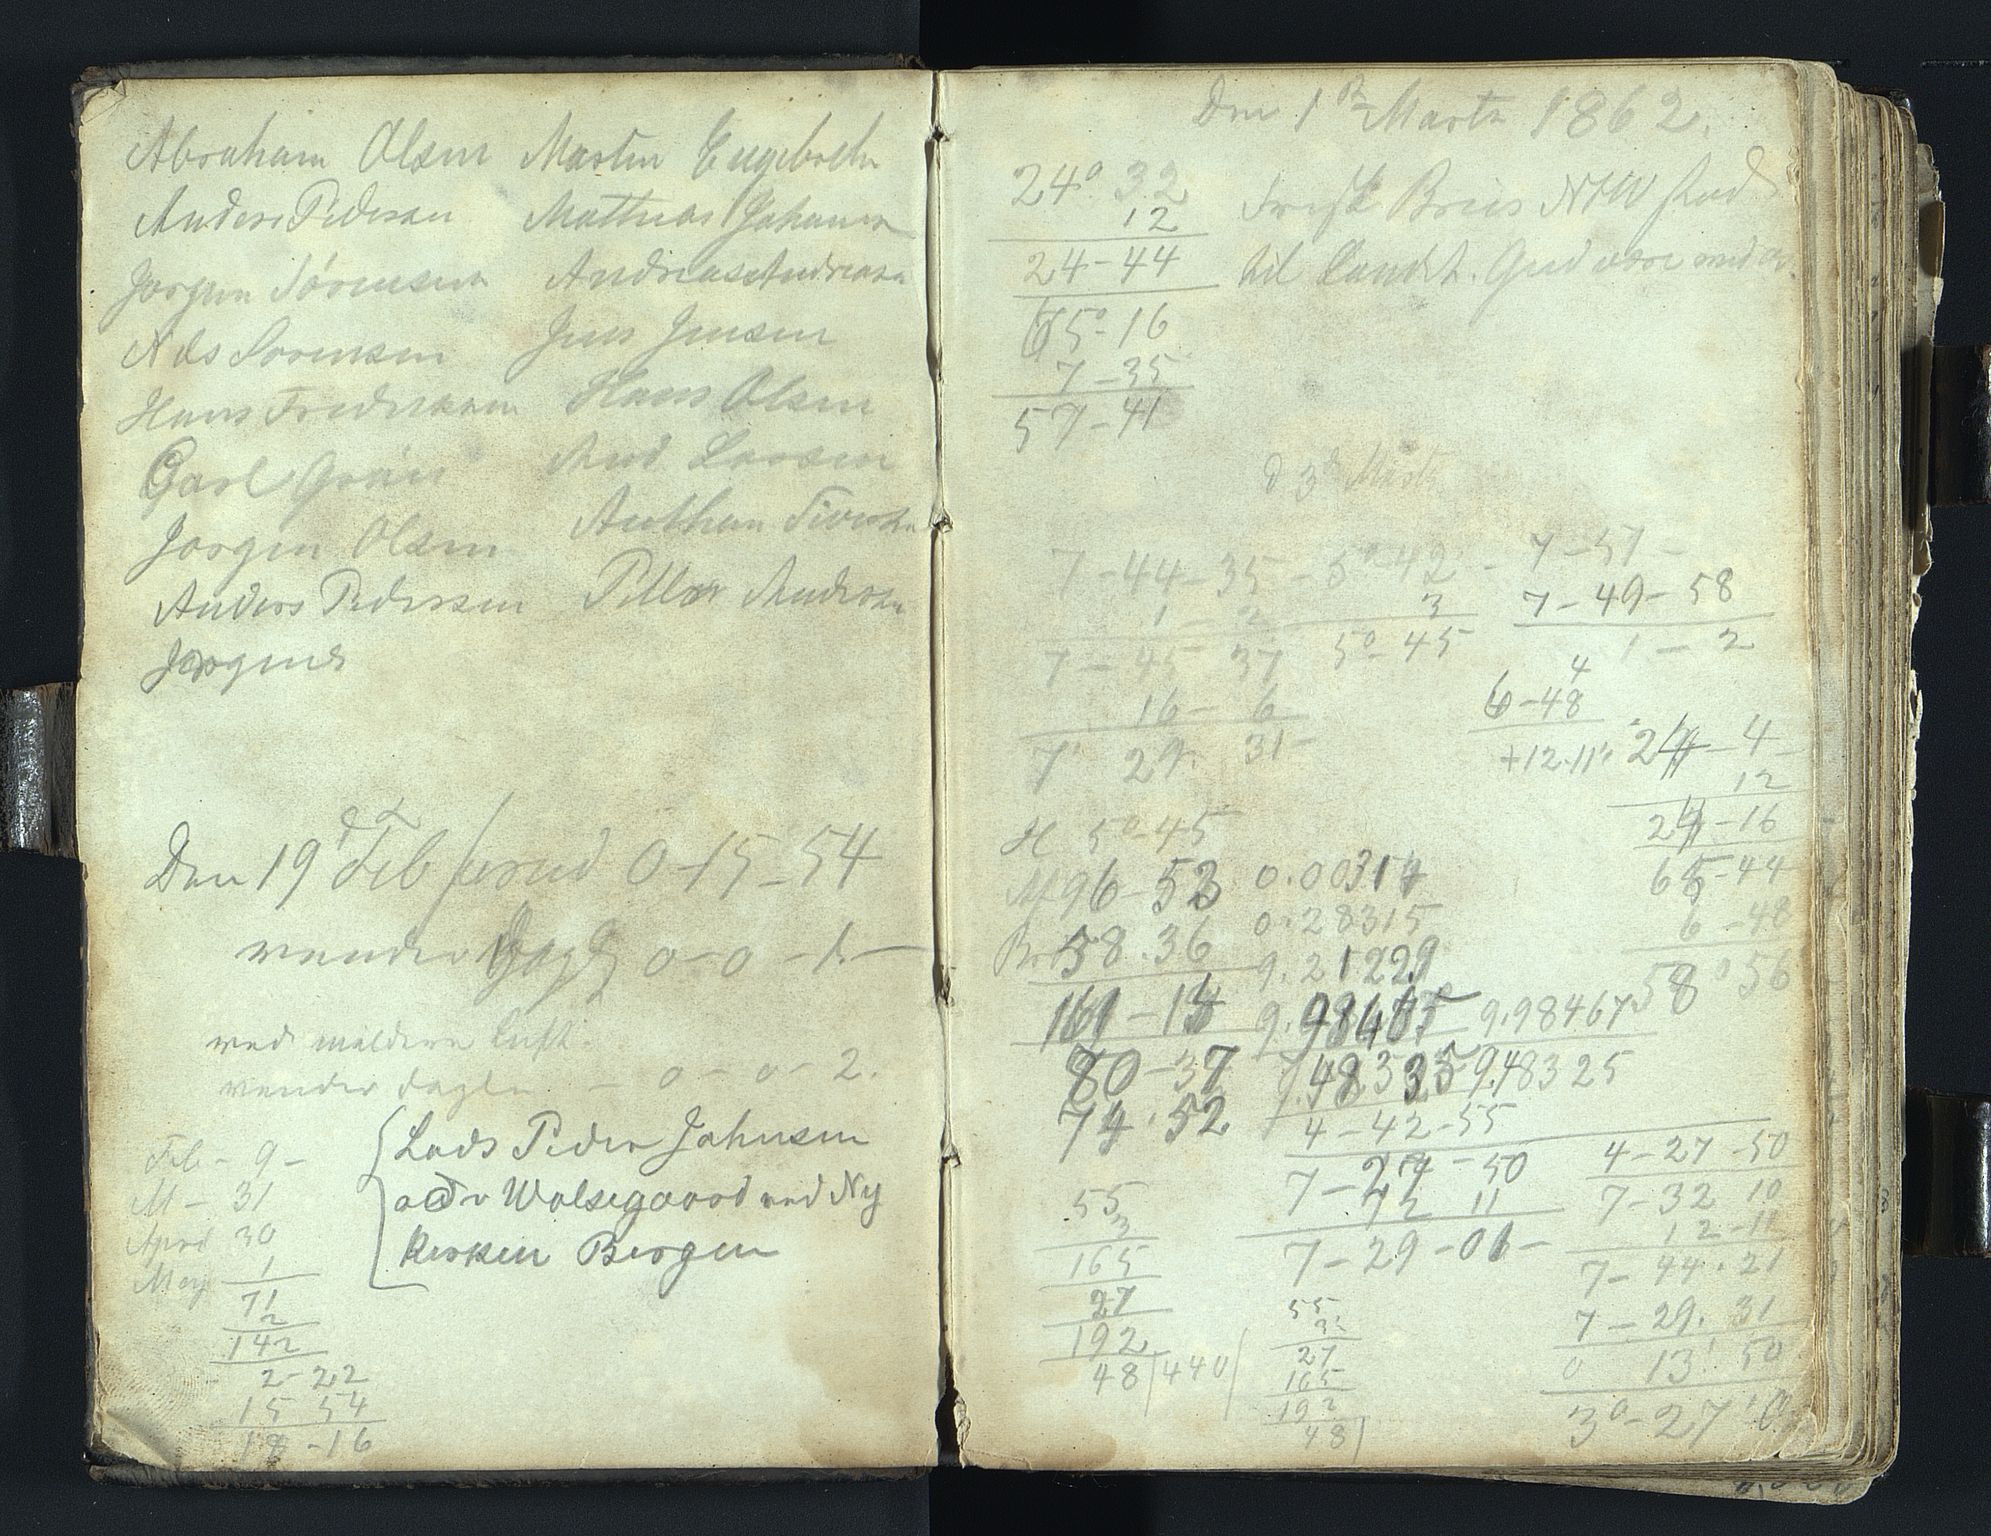 Abraham Olsen
Anders Pedersen
Jørgen Sørensen
Nils Sørensen
Hans Fredriksen
Carl Grøn
Jørgen Olsen
Anders Pedersen
Jørgens
Martin Engebreth
Mathias Johansen
Andreas Andreasen
Jens Jensen
Hans Olsen
And Larsen
Anthon
Petter Andersen
Den 19d Feb 0-15-54
vender Dagl 0-0-1-
ved luft.
vender daglen - 0-0-2.
Feb - 9 -
M - 31
April 30
May 1
71
2
142
2-22
15 54
18-16
Lods Peder Johnsen
Wolsegaard ved Ny
Kirken Bergen
Den 1ste Marts 1862.
24° 32
12
24-44
65°-16
7-35
57-41
Frisk Bris NW Stod
til Landet. Gud være med os.
d 3d Marts
7-44-35-5°-42 - 7-57-
1 2 3 7-49-58
7-45 37 5°-45 1-2
16-6
7 29. 31-
4
6-48
+12.11"
24-4
12
24-16
65-44
6-48
58°56
H 5°-45
M 96-53
Br 58.36
161-14
80-37
74.52
0.00314
0.28315
9.21229
9.98467
9.48325
4-42-55
7-24-50
42 11
7-29-01-
9.98467
9.48325
4-27-50
7-32 10
12-11
7-44.21
7-29.31
0 13' 50
3°-27'
55
3
165
27
192
48/440/
55
32
27
165
192
48/